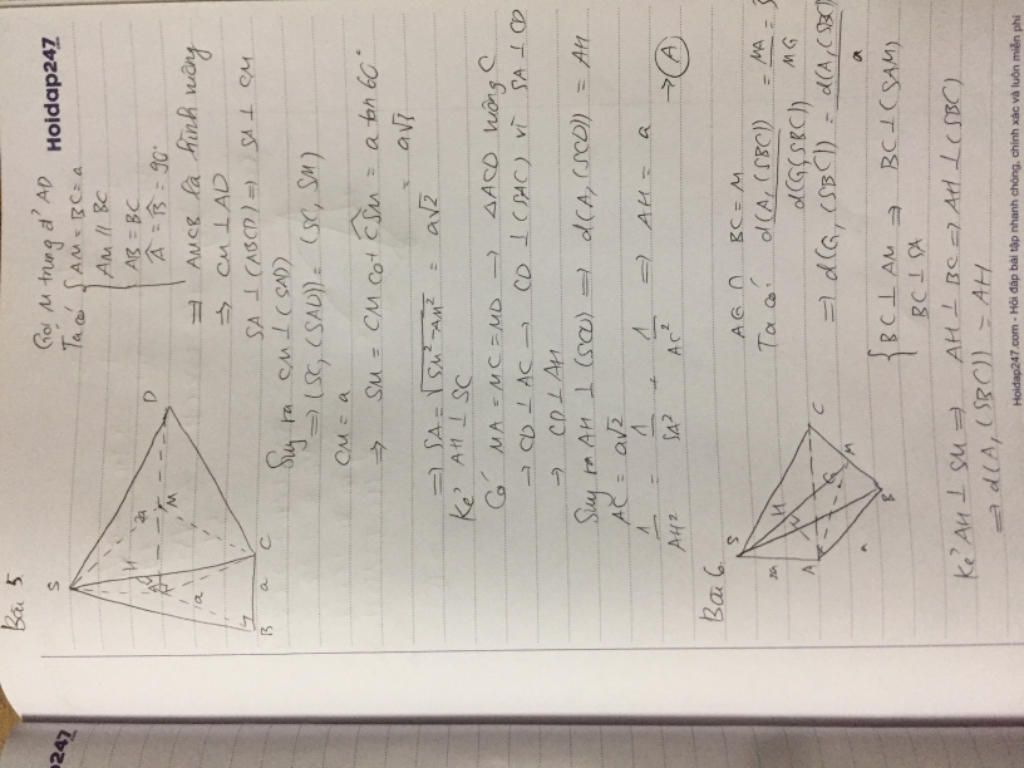 Hoidap247
Bài 5
S
A
B
C
D
M
H
2a
a
a
Gọi M trung đ' AD
Ta có { AM = BC = a
AM // BC
AB = BC
Â = B̂ = 90°
⇒ AMCB là hình vuông
⇒ CM ⊥ AD
SA ⊥ (ABCD) ⇒ SA ⊥ CM
Suy ra CM ⊥ (SAD)
⇒ (SC, (SAD)) = (SC, SM)
CM = a
⇒ SM = CM cot CSM = a tan 60°
= a√3
⇒ SA = √SM² - AM² = a√2
Kẻ AH ⊥ SC
Có MA = MC = MD → ΔACD vuông C
→ CD ⊥ AC → CD ⊥ (SAC) vì SA ⊥ CD
→ CD ⊥ AH
Suy ra AH ⊥ (SCD) ⇒ d(A, (SCD)) = AH
AC = a√2
1/AH² = 1/SA² + 1/AC² ⇒ AH = a → A
Bài 6.
S
A
B
C
M
G
H
a
AG ∩ BC = M
Ta có d(A, (SBC)) / d(G, (SBC)) = MA / MG
⇒ d(G, (SBC)) = d(A, (SBC))
{ BC ⊥ AM ⇒ BC ⊥ (SAM)
BC ⊥ SA
Kẻ AH ⊥ SM ⇒ AH ⊥ BC ⇒ AH ⊥ (SBC)
⇒ d(A, (SBC)) = AH
Hoidap247.com - Hỏi đáp bài tập nhanh chóng, chính xác và luôn miễn phí